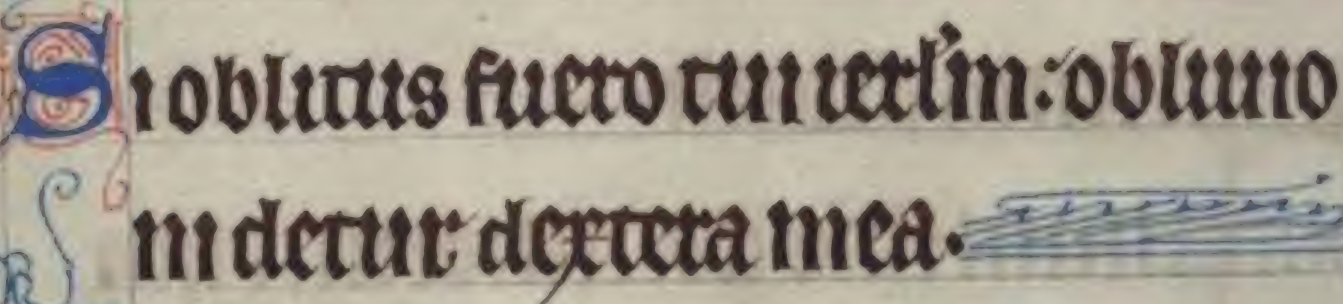 Si oblitus fuero tui ierl'm: obliuio
ni detur dextera mea.